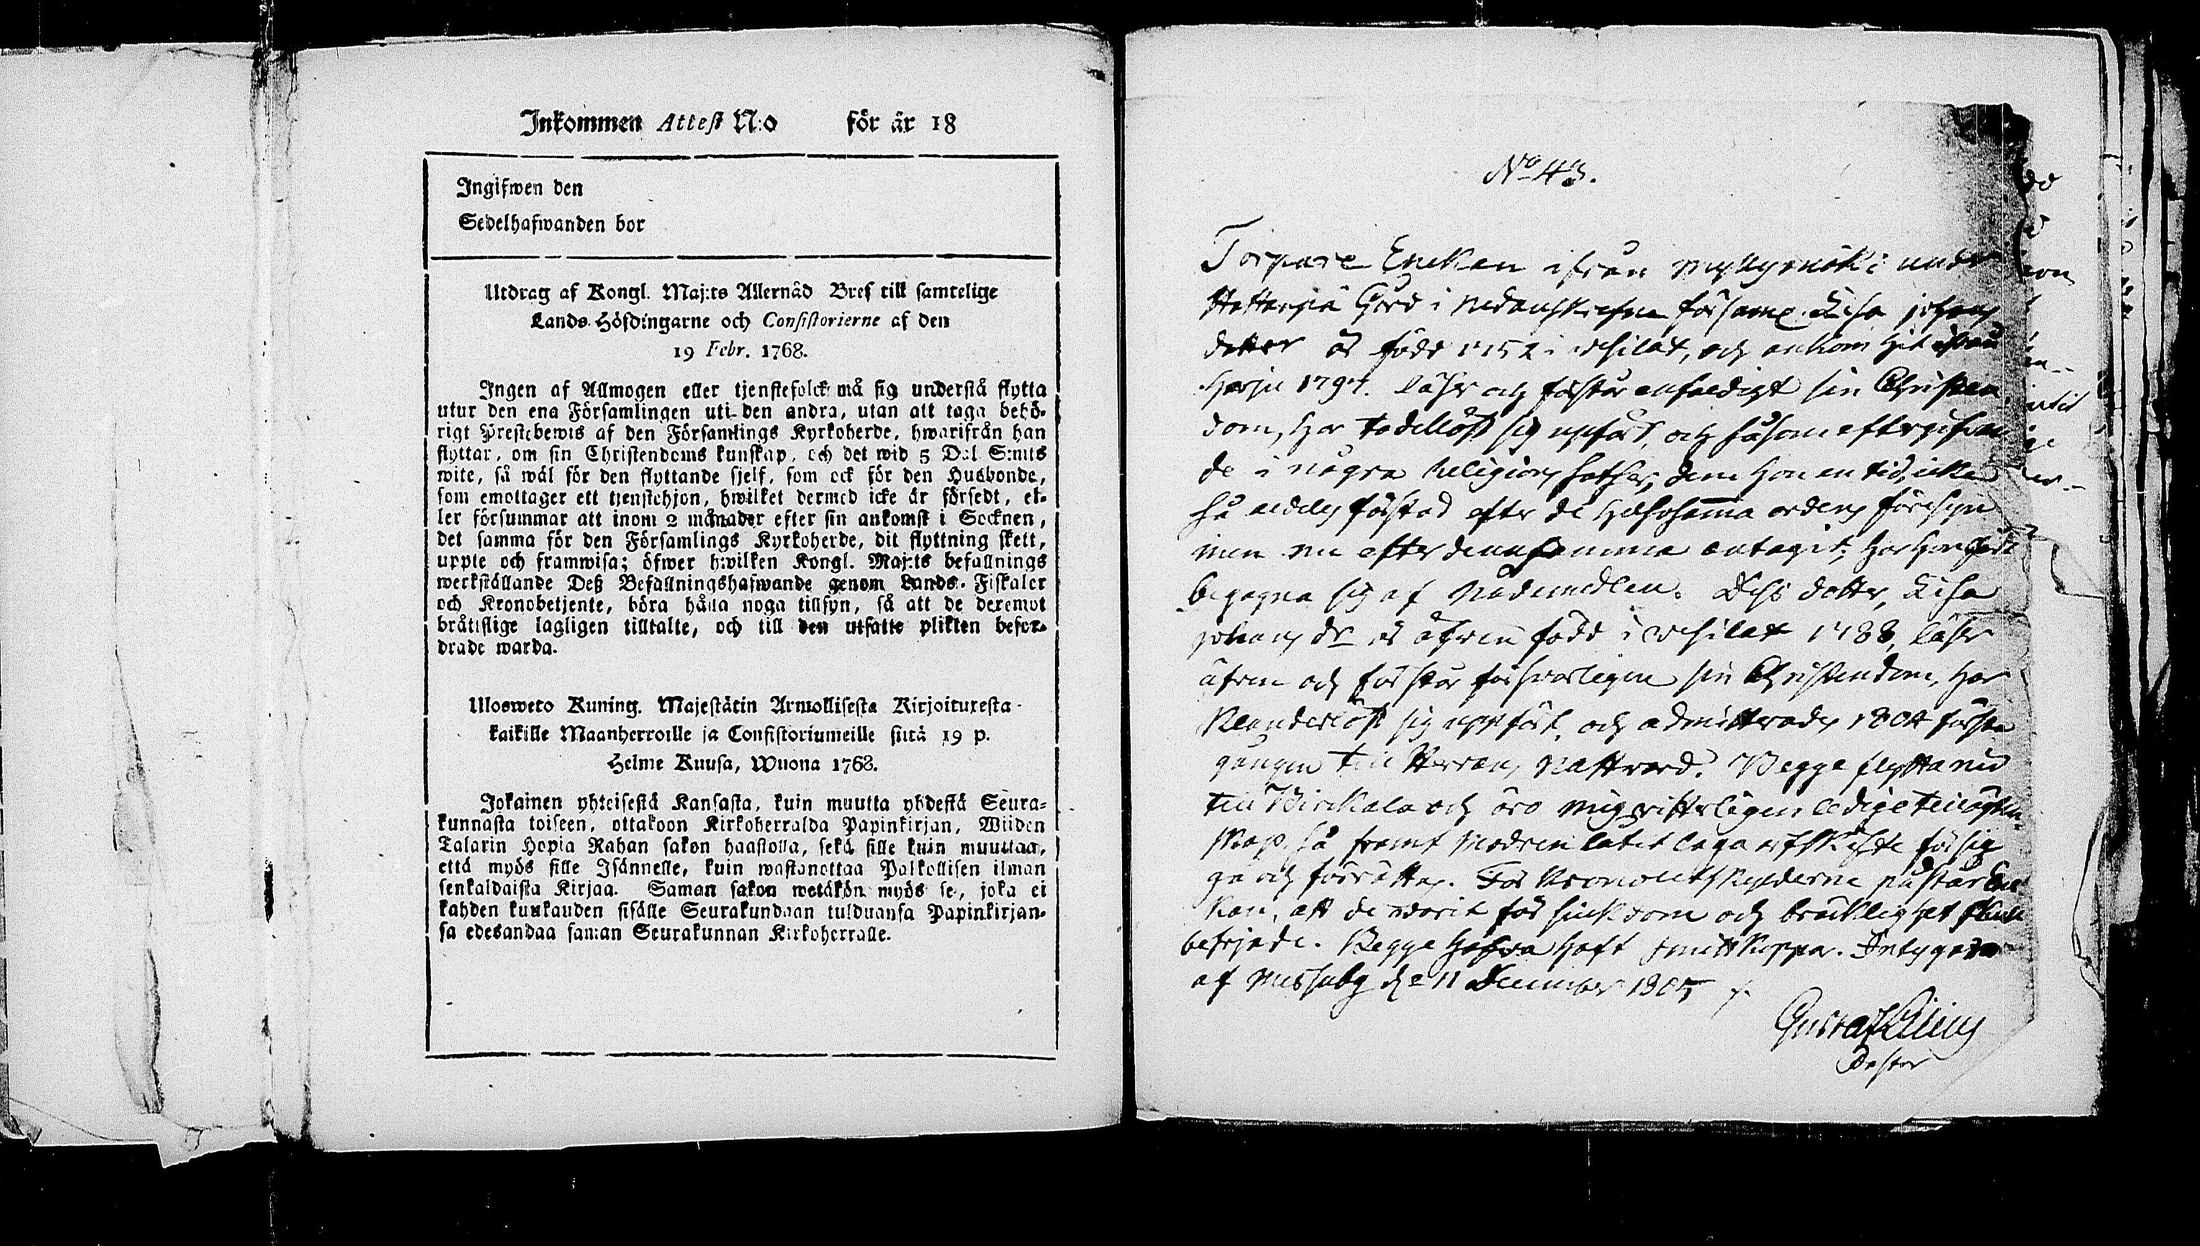 Inkommen Attest N:o för år 18
Ingifwen den
Sedelhafwanden bor
Utdrag af Kongl. Maj:ts Allernåd Bref till samtelige
Lands-Höfdingarne och Consistorierne af den
19 Febr. 1768.
Ingen af Allmogen eller tjenstefolck må sig understå flytta
utur den ena Församlingen uti den andra, utan att taga behö-
rigt Prestebewis af den Församlings Kyrkoherde, hwarifrån han
flyttar, om sin Christendoms kunskap, och det wid 5 Dal S:mts
wite, så wäl för den flyttande sjelf, som ock för den Husbonde,
som emottager ett tjenstehjon, hwilket dermed icke är försedt, el-
ler försummar att inom 2 månader efter sin ankomst i Socknen,
det samma för den Församlings Kyrkoherde, dit flyttning skett,
uppte och framwisa; öfwer hwilken Kongl. Maj:ts befallnings
werkställande Deß Befallningshafwande genom Lands-Fiskaler
och Kronobetjente, böra hålla noga tillsyn, så att de deremot
bråttslige lagligen tilltalte, och till den utsatte plikten befor-
drade warda.
Ulosweto Kuning. Majestätin Armollisesta Kirjoituresta
kaikille Maanherroille ja Consistoriumeille siitä 19 p.
Helme Kuusa, Wuona 1768.
Jokainen yhteisestä Kansasta, kuin muutta yhdestä Seura-
kunnasta toiseen, ottakoon Kirkoherralda Papinkirjan, Wiiden
Talarin Hopia Rahan sakon haastolla, sekä sille kuin muuttaa,
että myös sille Isännelle, kuin wastanottaa Palkollisen ilman
senkaldaista Kirjaa. Saman sakon wetäkön myös se, joka ei
kahden kuukauden sisälle Seurakundaan tulduansa Papinkirjan-
sa edesandaa saman Seurakunnan Kirkoherralle.
No 43.
Torpare Enckan ifrån under
Gård i församl. Lisa johans
dotter är född 1752 i och ankom hit ifrån
1797. läser och förstår enfaldigt sin Christen
dom, har sig upfört, och såsom eftergifvan
de i några Religions satser, dem hon en tid icke
så förstod efter de ordens
men nu efter densamma antagit; har hon
begagna sig af Nådemedlen. Dess dotter, Lisa
johans dr är äfven född i 1788, läser
äfven och förstår försvarligen sin Christendom, har
klanderlöst sig uppfört, och admitterades 1804 första
gången till Herrans Nattvard. Begge flytta nu
till Birckala och äro mig vitterligen ledige till ägten-
skap, så framt modren låtit laga arfskifte för sig
gå och förrättas. För
kan, att de varit för sjukdom och bräcklighet
befrjade. Begge hafva haft Smittkoppor. Intygar
af Messuby d: 11 December 1805
Gustaf Lilius
Pastor